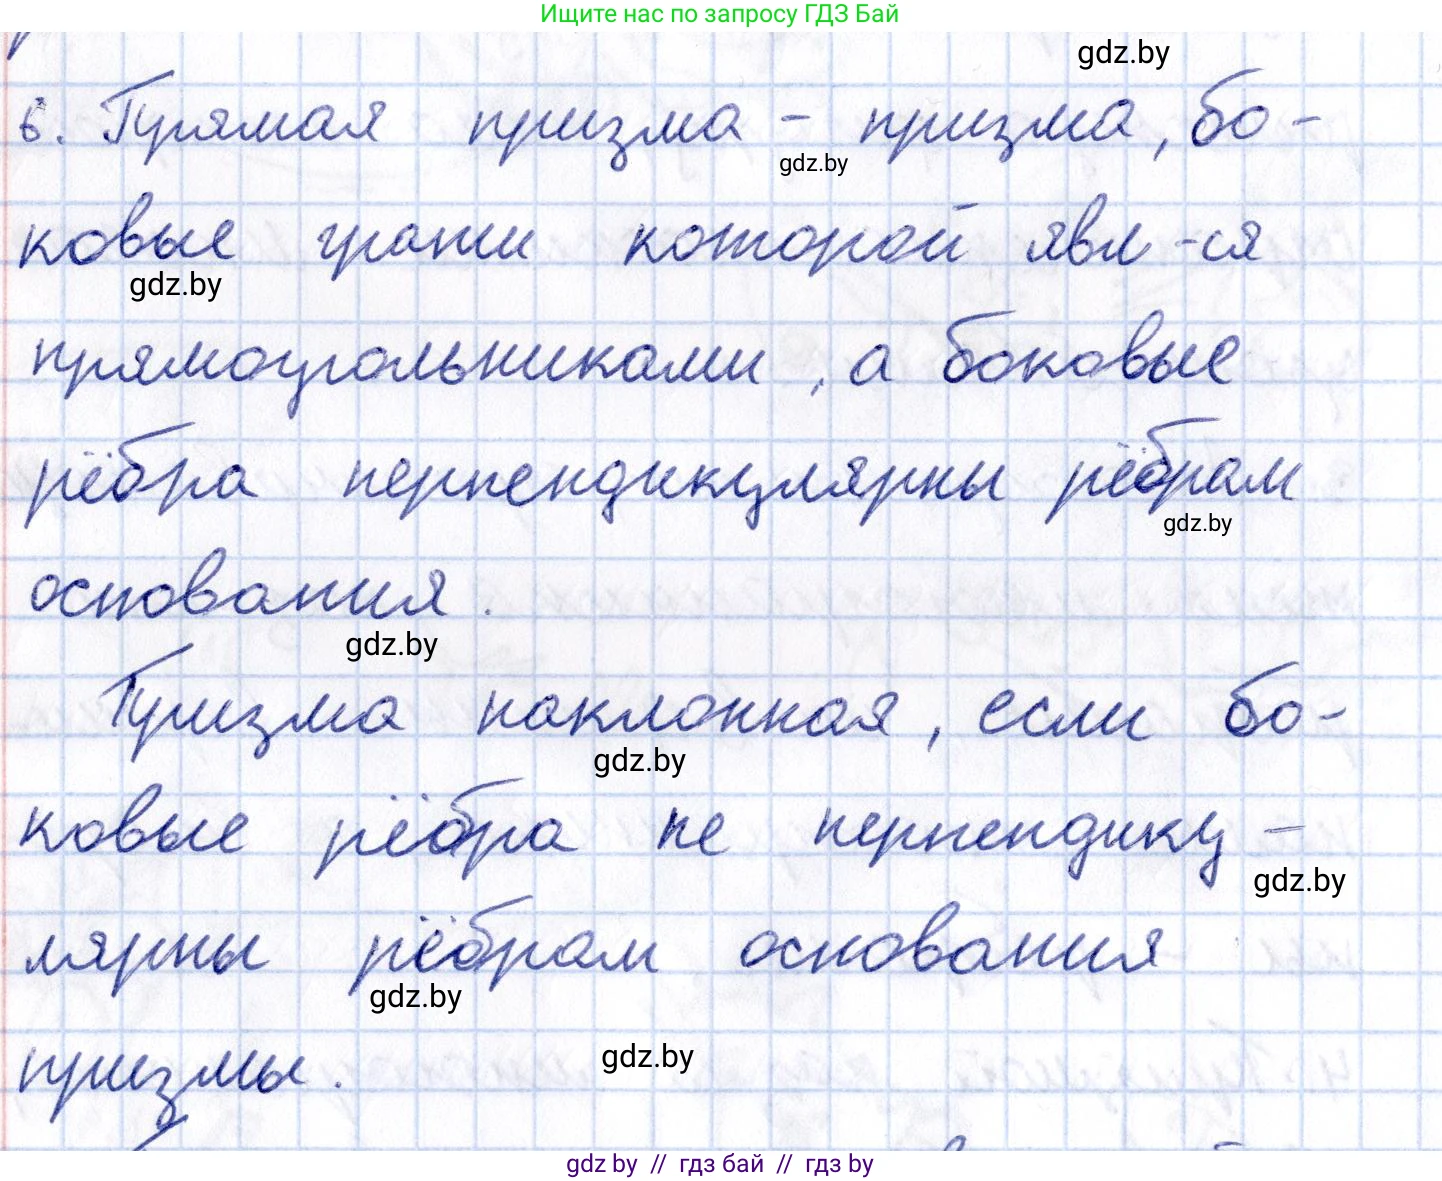 Ищите нас по запросу ГДЗ Бай
gdz.by
6. Прямая призма - призма, бо-
gdz.by
ковые грани которой явл-ся
gdz.by
прямоугольниками, а боковые
рёбра перпендикулярны рёбрам
gdz.by
основания.
gdz.by
Призма наклонная, если бо-
gdz.by
ковые рёбра не перпендику-
gdz.by
лярны рёбрам основания
gdz.by
призмы.
gdz.by
gdz.by // гдз бай // гдз by